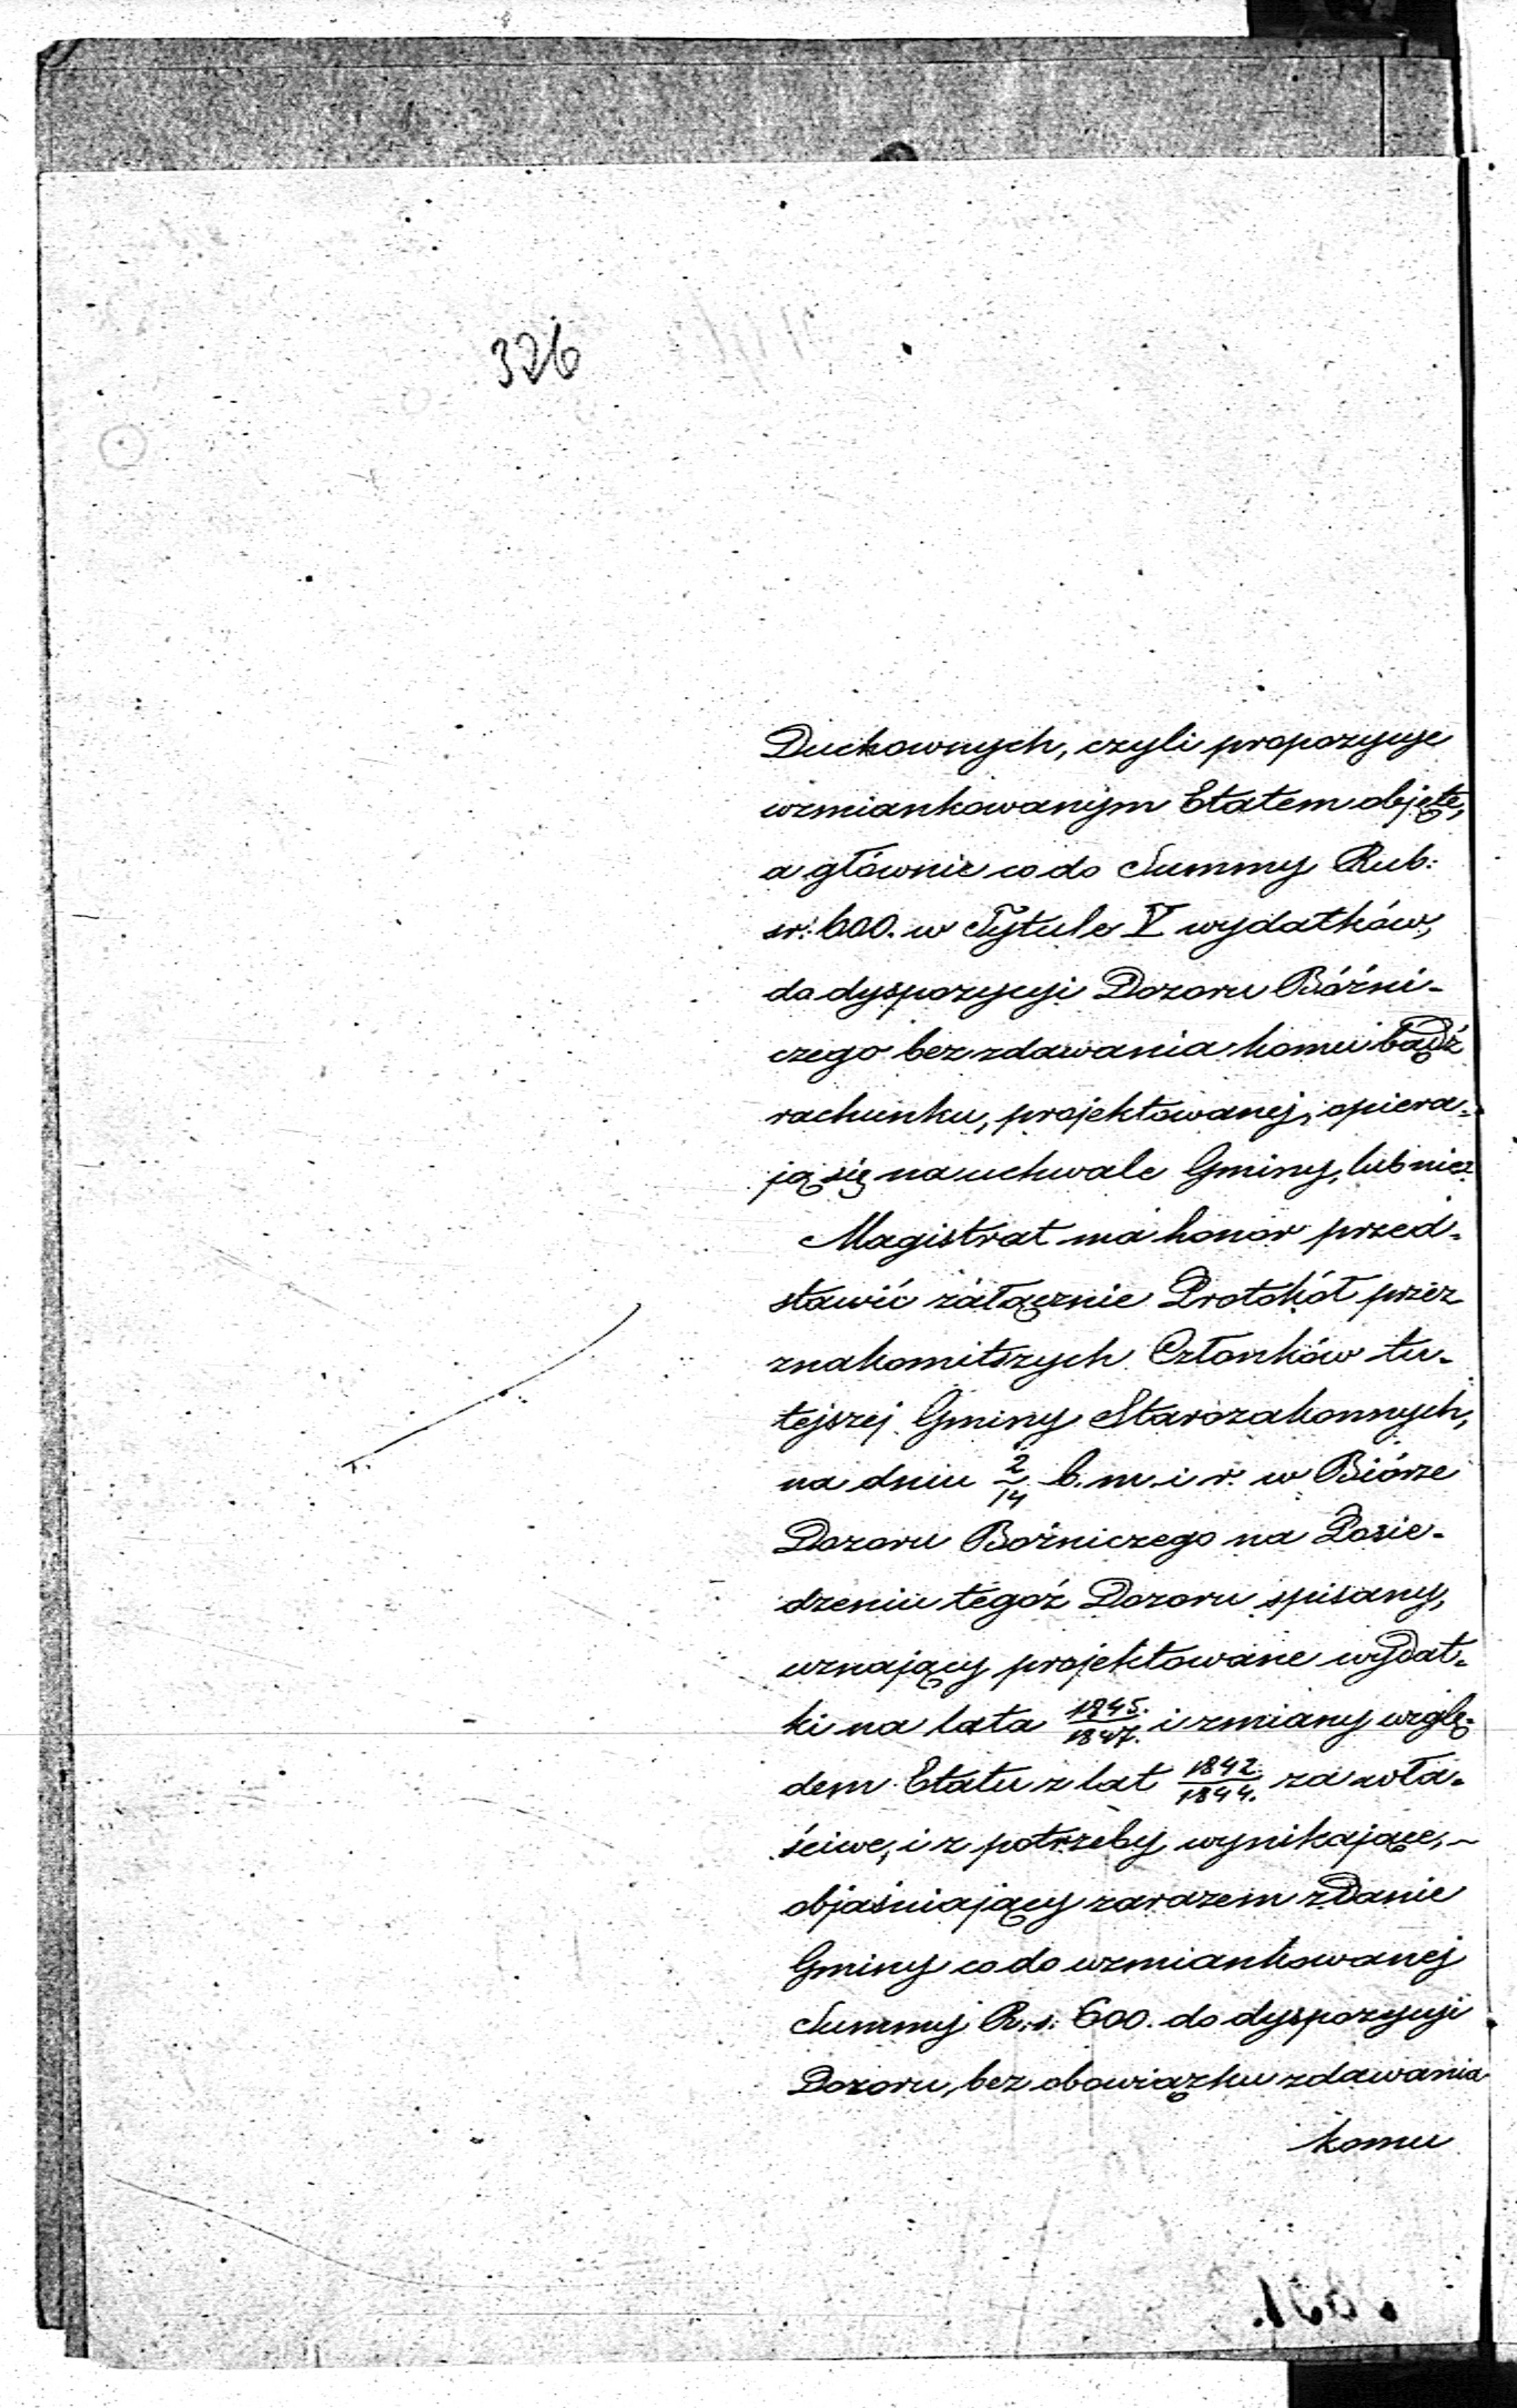 326
Duchownych, czyli propozycye
wzmiankowanym Etatem objęte,
a głównie co do Summy Rub:
sr: 600. w Tytule V wydatków,
do dyspozycyi Dozoru Bóźni-
czego bez zdawania komu bądź
rachunku, projektowanej, opiera-
ją się na uchwale Gminy, lub nie?
Magistrat ma honor przed-
stawić załącznie Protokół przez
znakomitszych Członków tu-
tejszej Gminy Starozakonnych,
na dniu 2/14 b. m. i r. w Biórze
Dozoru Bożniczego na Posie-
dzeniu tegoż Dozoru spisany,
uznający projektowane wydat-
ki na lata 1845./1847. i zmiany wzglę-
dem Etatu z lat 1842/1844. za wła-
ściwe, i z potrzeby wynikające, ~
objaśniający zarazem zdanie
Gminy co do wzmiankowanej
Summy R: s: 600. do dyspozycyi
Dozoru, bez obowiązku zdawania
komu